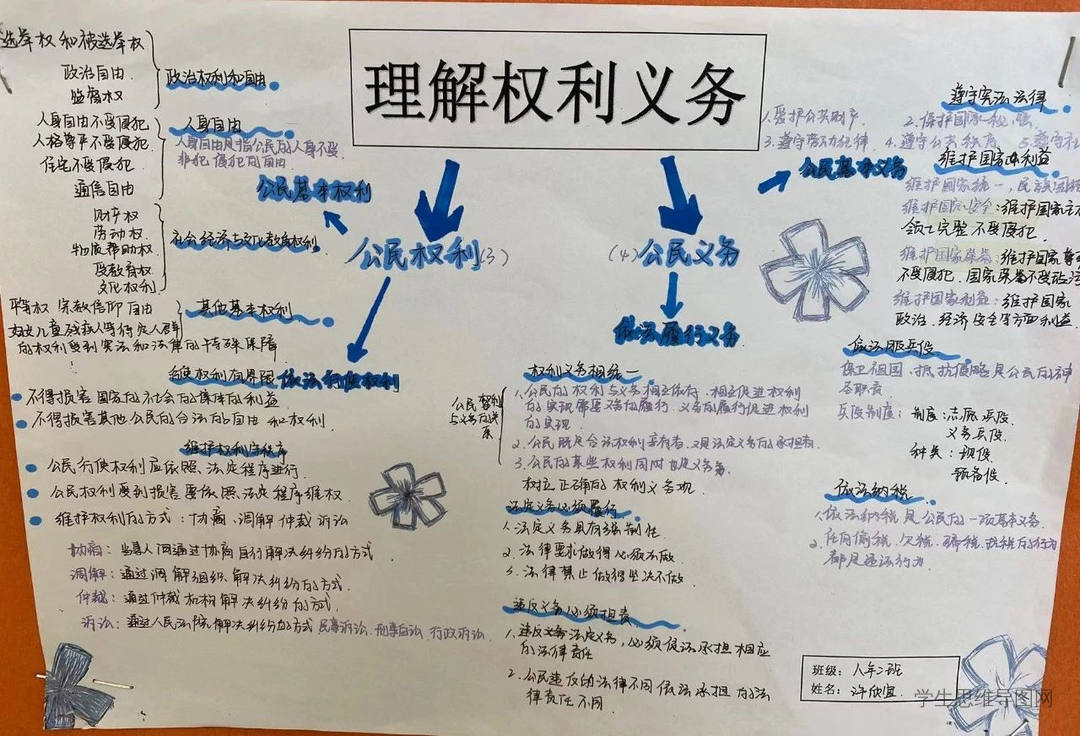 理解权利义务
选举权和被选举权
政治自由
监督权
政治权利和自由
人身自由不受侵犯
人格尊严不受侵犯
住宅不受侵犯
通信自由
人身自由
人身自由是指公民的人身不受
非法侵犯的自由
公民基本权利
财产权
劳动权
物质帮助权
受教育权
文化权利
社会经济与文化教育权利
平等权 宗教信仰自由
妇女儿童残疾人等特定人群
的权利受到宪法和法律的特殊保障
其他基本权利
公民权利(3)
行使权利有界限 依法行使权利
不得损害国家的社会的集体的利益
不得损害其他公民的合法的自由和权利
维护权利守程序
公民行使权利应依照法定程序进行
公民权利受到损害要依照法定程序维权
维护权利的方式：协商、调解 仲裁 诉讼
协商：当事人间通过协商自行解决纠纷的方式
调解：通过调解组织解决纠纷的方式
仲裁：通过仲裁机构解决纠纷的方式
诉讼：通过人民法院解决纠纷的方式 民事诉讼 刑事自诉 行政诉讼
(4)公民义务
公民基本义务
遵守宪法法律
1.爱护公共财产 2.保护国家秘密
3.遵守劳动纪律 4.遵守公共秩序 5.遵守社
维护国家利益
维护国家统一，民族团结
维护国家安全：维护国家主
领土完整 不受侵犯
维护国家荣誉：维护国家尊
不受侵犯，国家荣誉不受玷污
维护国家利益：维护国家
政治、经济安全等方面利益
依法服兵役
保卫祖国、抵抗侵略是公民的神
圣职责
兵役制度：制度：志愿兵役
义务兵役
种类：现役
预备役
依法纳税
1.依法纳税是公民的一项基本义务
2.任何偷税、欠税、骗税、抗税的行为
都是违法行为
依法履行义务
权利义务相统一
公民权利
与义务的关
系
1.公民的权利与义务相互依存、相互促进 权利
的实现需要义务的履行 义务的履行促进权利
的实现
2.公民既是合法权利享有者，又是法定义务的承担者
3.公民的某些权利同时也是义务
树立正确的权利义务观
法定义务必须履行
1.法定义务具有强制性
2.法律要求做的必须去做
3.法律禁止做的坚决不做
违反义务必须担责
1.违反义务法定义务，必须依法承担相应
的法律责任
2.公民违反的法律不同 依法承担的法
律责任不同
班级：八年二班
姓名：许欣宜
学生思维导图网